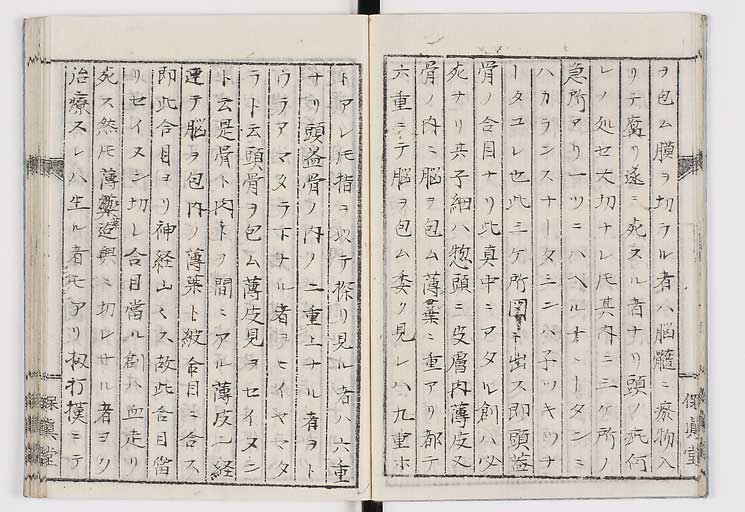 ヲ包ム膜ヲ切ラル者ハ脳髄ニ瘀物入
リテ腐リ遂ニ死スル者ナリ頭ノ疵何
レノ処セ大切ナレ𪜈其内ニ三ケ所ノ
急所アリ一ツニハヘルナートータンニ
ハカランスナータ三ニハ子ツキツナ
ータユレ也此三ケ所圖ニ出ス即頭蓋
骨ノ合目ナリ此真中ニアタル創ハ必
死ナリ其子細ハ惣頭ニ皮膚内薄皮又
骨ノ内ニ脳ヲ包ム薄葉二重アリ都テ
六重ニテ脳ヲ包ム委ク見レハ九重ホ
保眞堂
トアレ𪜈指ヲ以テ探リ見ル者ハ六重
ナリ頭蓋骨ノ内ノ二重上ナル者ヲト
ウラアマタラ下ナル者ヲヒイヤマタ
ラト云頭骨ヲ包ム薄皮見ヲセイヌン
ト云是骨ト肉トノ間ニアル薄皮ニ経
連テ脳ヲ包内ノ薄葉ト彼合目ニ合ス
即此合目ヨリ神経出ヘス故此合目當
リセイヌン切レ合目當ル創ハ血走リ
死ス然𪜈薄葉迠與ニ切レサル者ヨク
治療スレハ生ル者モアリ扨打撲ニテ
保眞堂